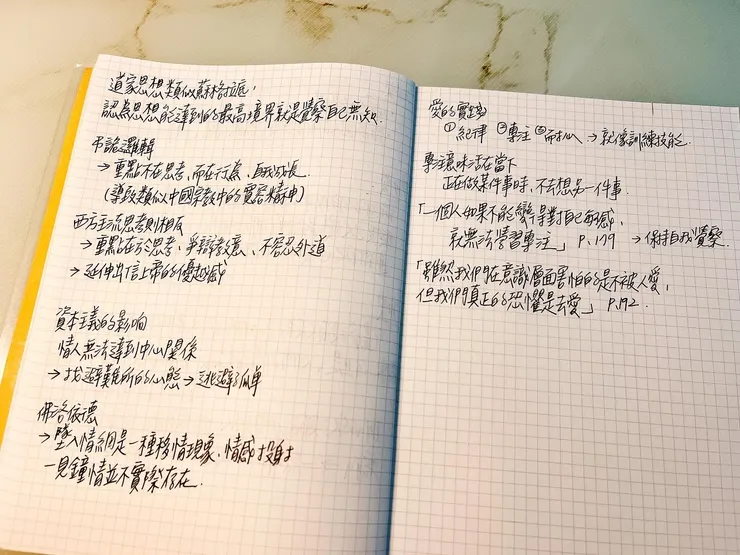 道家思想類似蘇格拉底，
認為思想能達到的最高境界就是覺察自己無知.
弔詭邏輯
→重點不在思考，而在行為、自我成長.
(導致類似中國宗教中的寬容精神)
西方主流思考則相反
→重點在於思考、爭辯教意、不容忍外道
→延伸出信上帝的優越感
資本主義的影響
情人無法達到中心關係
→找避難所的心態→逃避孤單
佛洛依德
→墜入情網是一種移情現象、情感投射
一見鐘情並不實際存在.
愛的實踐
①紀律 ②專注 ③耐心 →就像訓練技能.
專注意味活在當下
正在做某件事時，不去想另一件事
「一個人如果不能變得對自己敏感，
就無法學習專注」P.179 →保持自我覺察.
「雖然我們在意識層面害怕的是不被人愛，
但我們真正的恐懼是去愛」P.192.